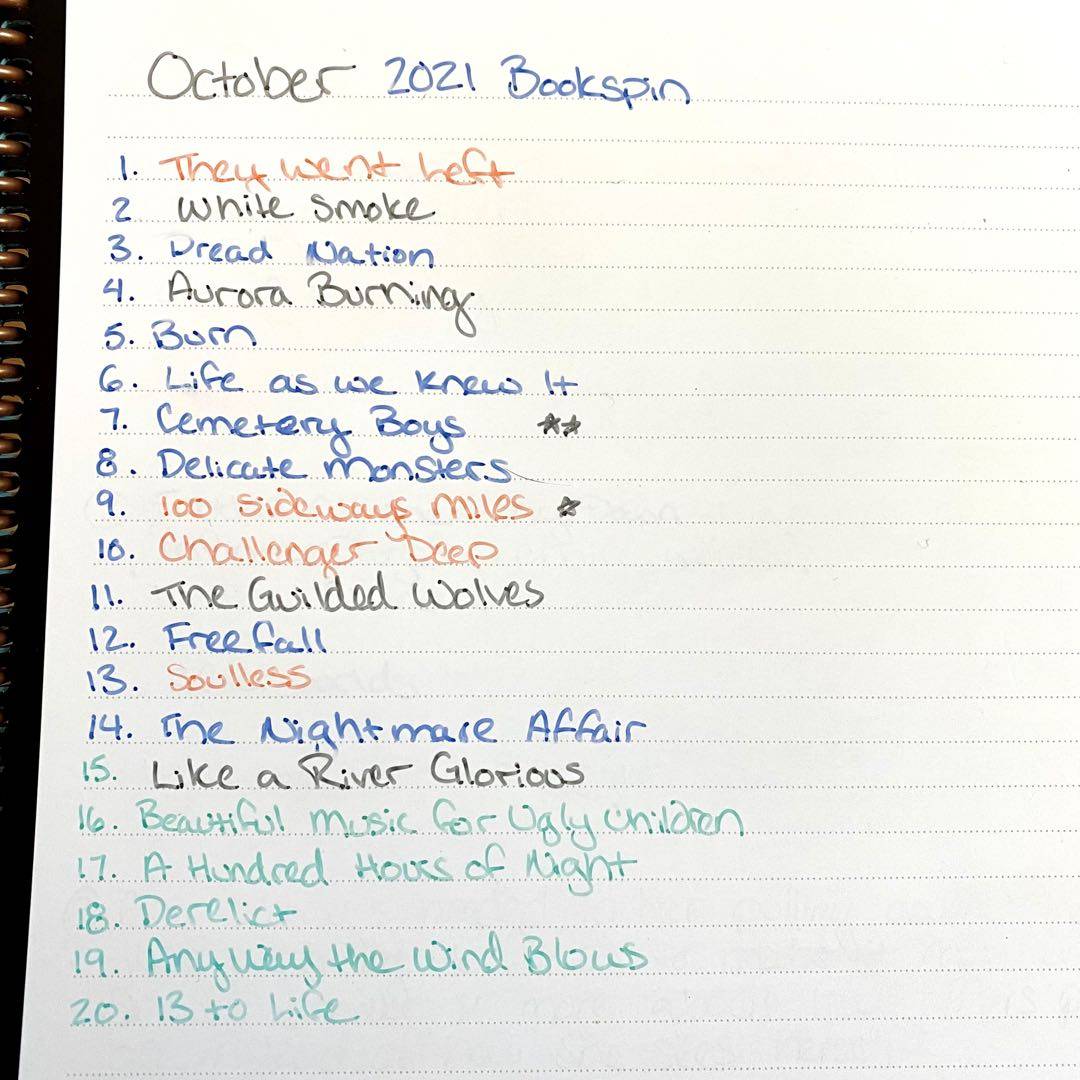 October 2021 Bookspin
1. They Went Left
2 White Smoke
3. Dread Nation
4. Aurora Burning
5. Burn
6. Life as we Knew It
7. Cemetery Boys **
8. Delicate Monsters
9. 100 Sideways Miles *
10. Challenger Deep
11. The Guilded Wolves
12. Freefall
13. Soulless
14. The Nightmare Affair
15. Like a River Glorious
16. Beautiful Music for Ugly Children
17. A Hundred Hours of Night
18. Derelict
19. Any Way the Wind Blows
20. 13 to Life